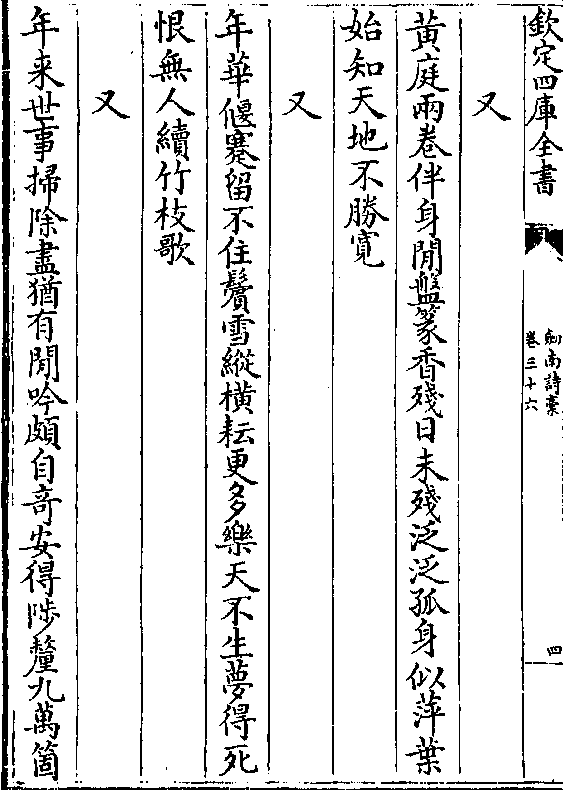 欽定四庫全書
劒南詩稾
卷三十六
四
又
黃庭兩卷伴身閒盤篆香殘日未殘泛泛孤身似萍葉
始知天地不勝寛
又
年華偃蹇留不住鬢雪縱橫耘更多樂天不生夢得死
恨無人續竹枝歌
又
年来世事掃除盡猶有閒吟頗自奇安得陟釐九萬箇